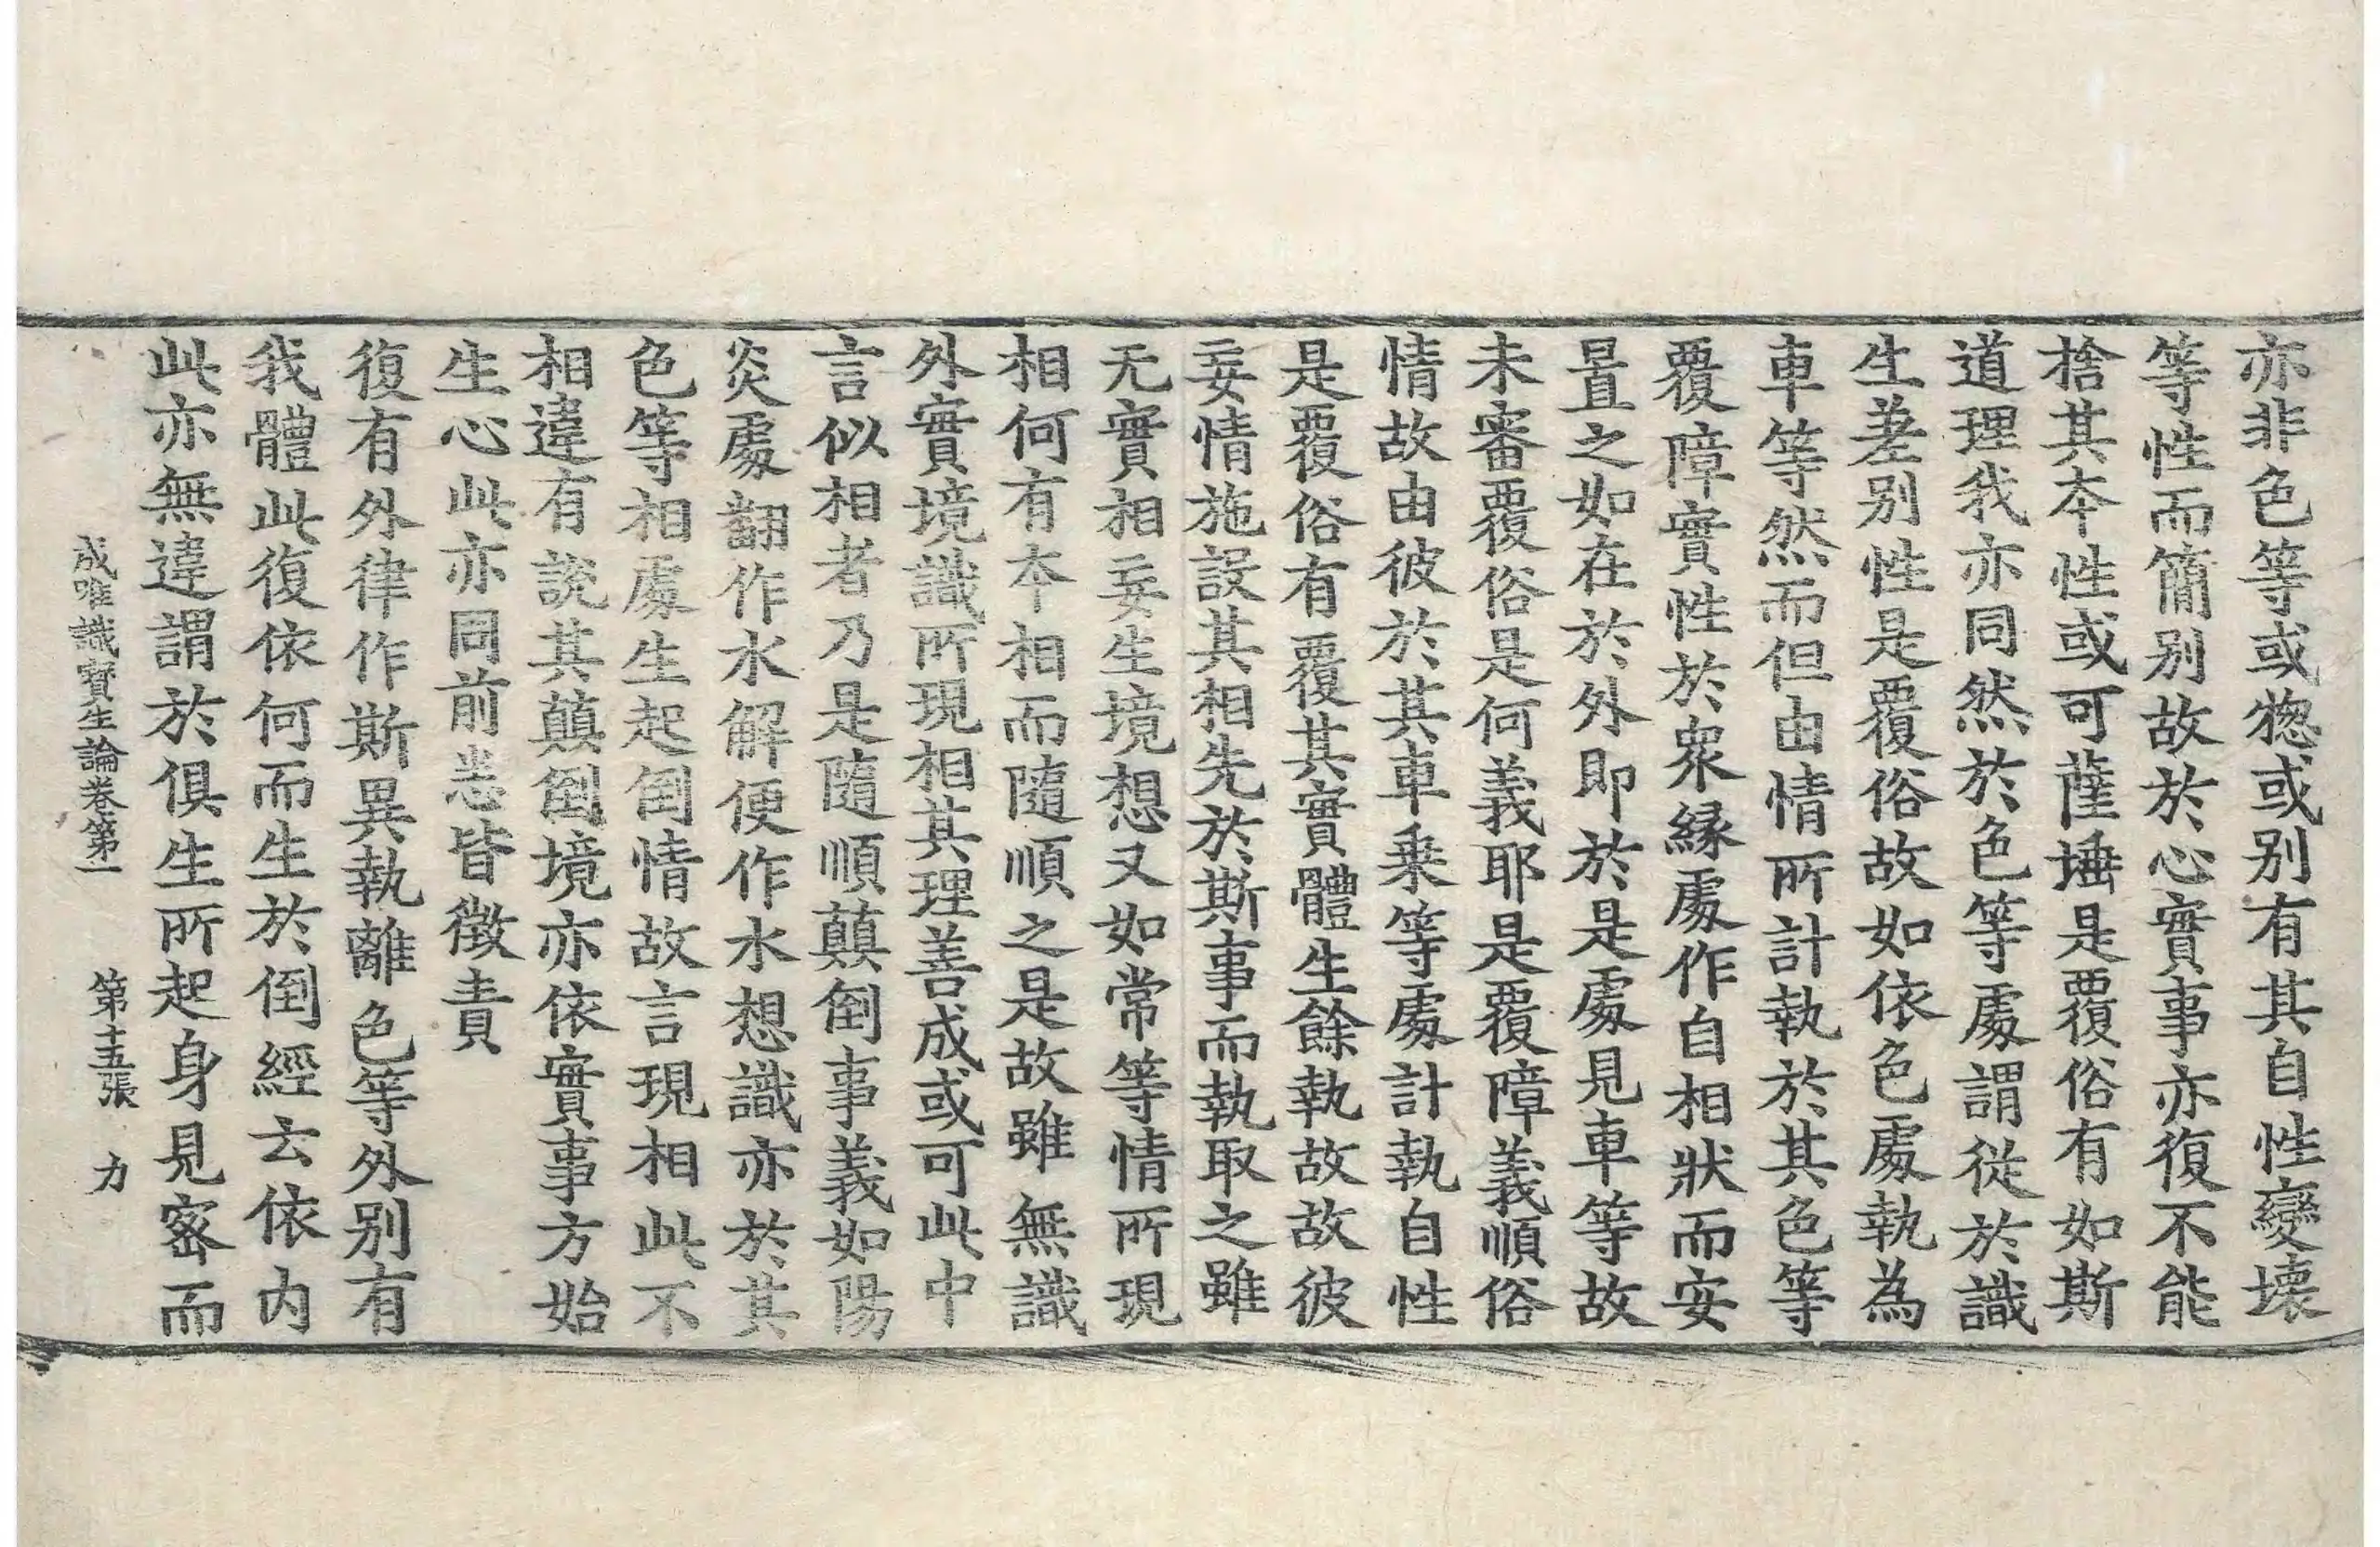 亦非色等或惣或别有其自性變壞
等性而簡别故於心實事亦復不能
捨其本性或可薩埵是覆俗有如斯
道理我亦同然於色等處謂從於識
生差别性是覆俗故如依色處執為
車等然而但由情所計執於其色等
覆障實性於衆縁處作自相狀而安
置之如在於外即於是處見車等故
未審覆俗是何義耶是覆障義順俗
情故由彼於其車乗等處計執自性
是覆俗有覆其實體生餘執故故彼
妄情施設其相先於斯事而執取之雖
无實相妄生境想又如常等情所現
相何有本相而隨順之是故雖無識
外實境識所現相其理善成或可此中
言似相者乃是隨順顛倒事義如陽
炎處翻作水解便作水想識亦於其
色等相處生起倒情故言現相此不
相違有説其顛倒境亦依實事方始
生心此亦同前悉皆徵責
復有外律作斯異執離色等外别有
我體此復依何而生於倒經云依内
此亦無違謂於俱生所起身見密而
成唯識寶生論卷第一 第十五張 力